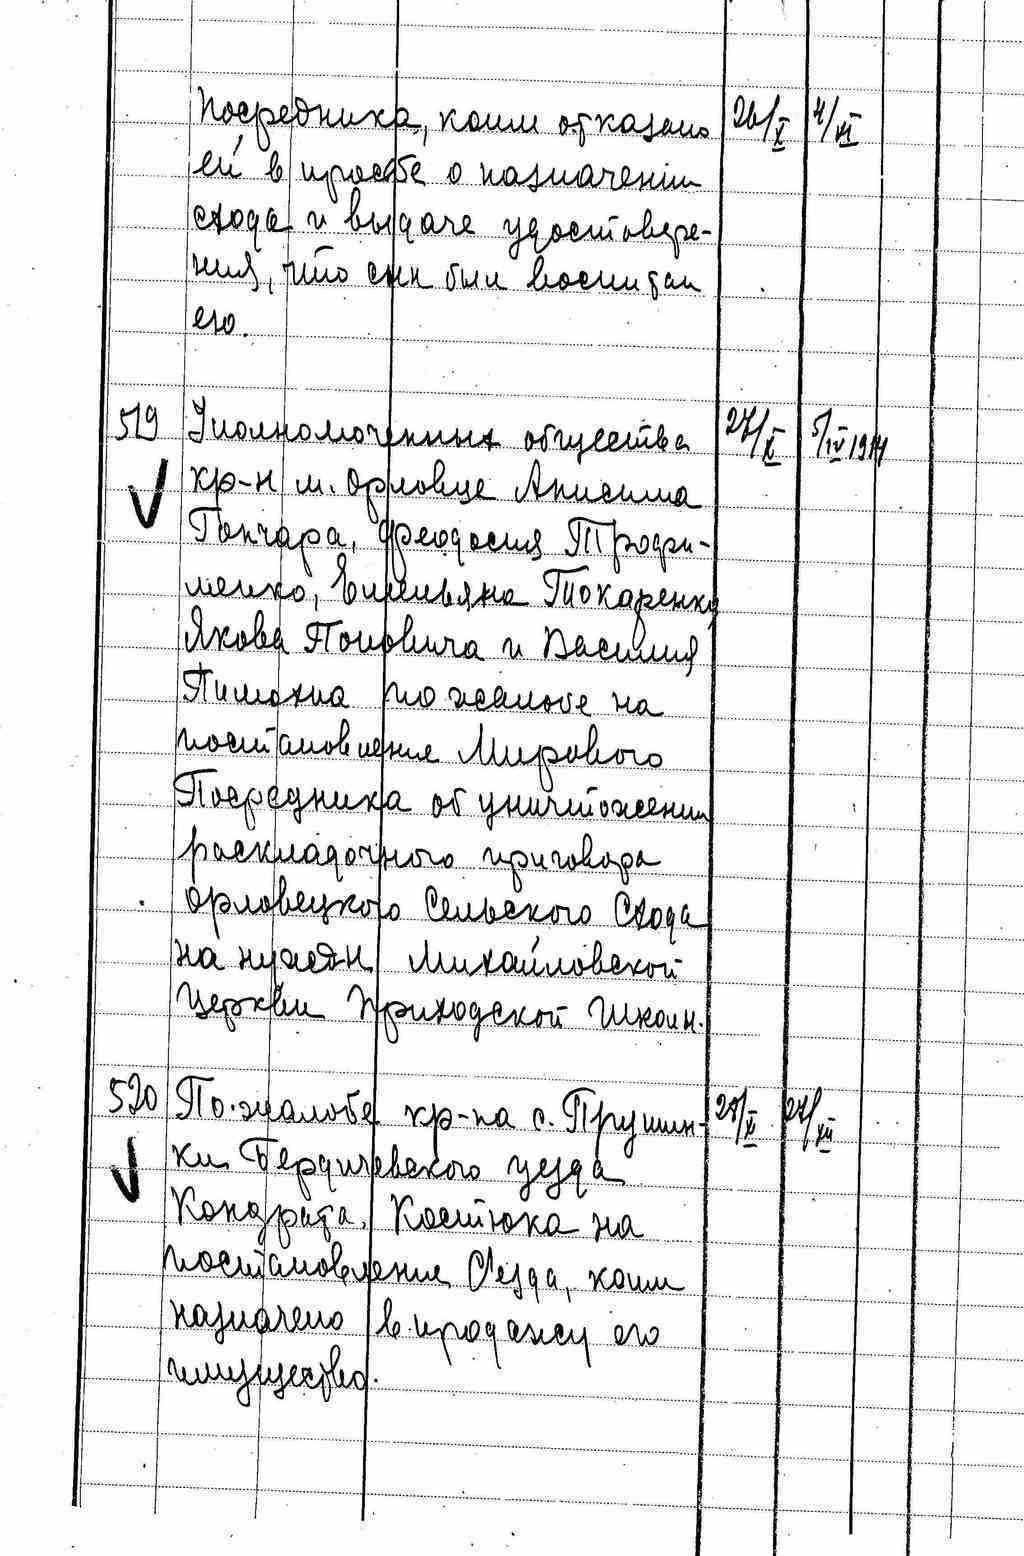 Посредника, коим отказано 26/X 4/XI
ей в просьбе о назначении
схода и выдаче удостовере-
ния, что сын был воспитан
его.
519 Уполномоченных общества 27/X 5/IV 1914
кр-н м. Орловце Анисима
Гончара, Феодосия Трофи-
менко, Емельяна Токаренко
Якова Поповича и Василия
Пимохна по жалобе на
постановление Мирового
Посредника об уничтожении
раскладочного приговора
Орловецкого Сельского Схода
на нужды Михайловской
Церкви Приходской Школы.
520 По жалобе кр-на с. Прушин- 27/X 27/XII
ки Бердичевского уезда
Кондрата Костюка на
постановление С'езда, коим
назначено в продажу его
имущество.